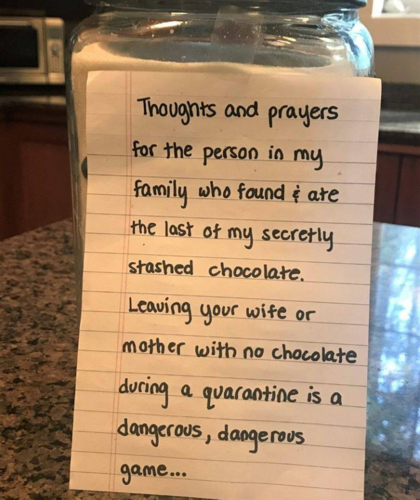 Thoughts and prayers
for the person in my
family who found & ate
the last of my secretly
stashed chocolate.
Leaving your wife or
mother with no chocolate
during a quarantine is a
dangerous, dangerous
game...